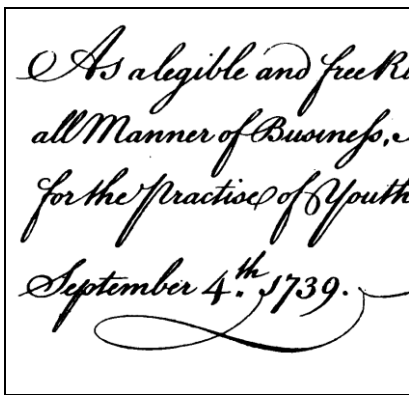 As a legible and free
all Manner of Busineſs,
for the practise of Youth
September 4.th 1739.